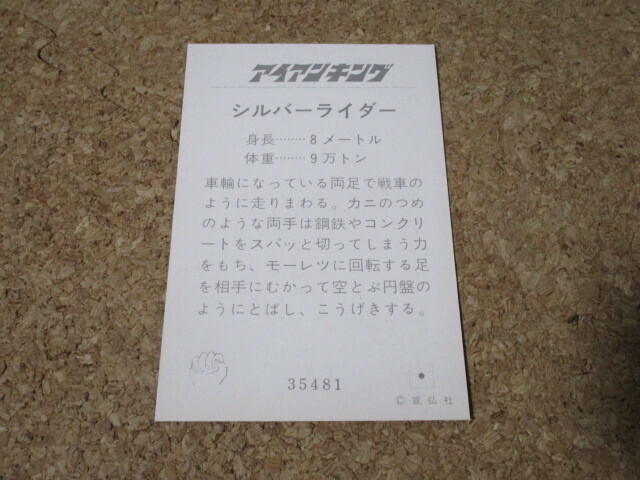 アイアンキング
シルバーライダー
身長………8メートル
体重………9万トン
車輪になっている両足で戦車の
ように走りまわる。カニのつめ
のような両手は鋼鉄やコンクリ
ートをスパッと切ってしまう力
をもち、モーレツに回転する足
を相手にむかって空とぶ円盤の
ようにとばし、こうげきする。
35481
©宣弘社